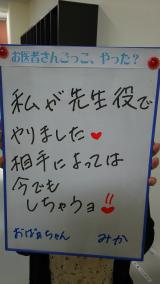 お医者さんごっこ、やった?
私が先生役で
やりました❤
相手によっては
今でも
しちゃうョ!!
おばぁちゃん みか